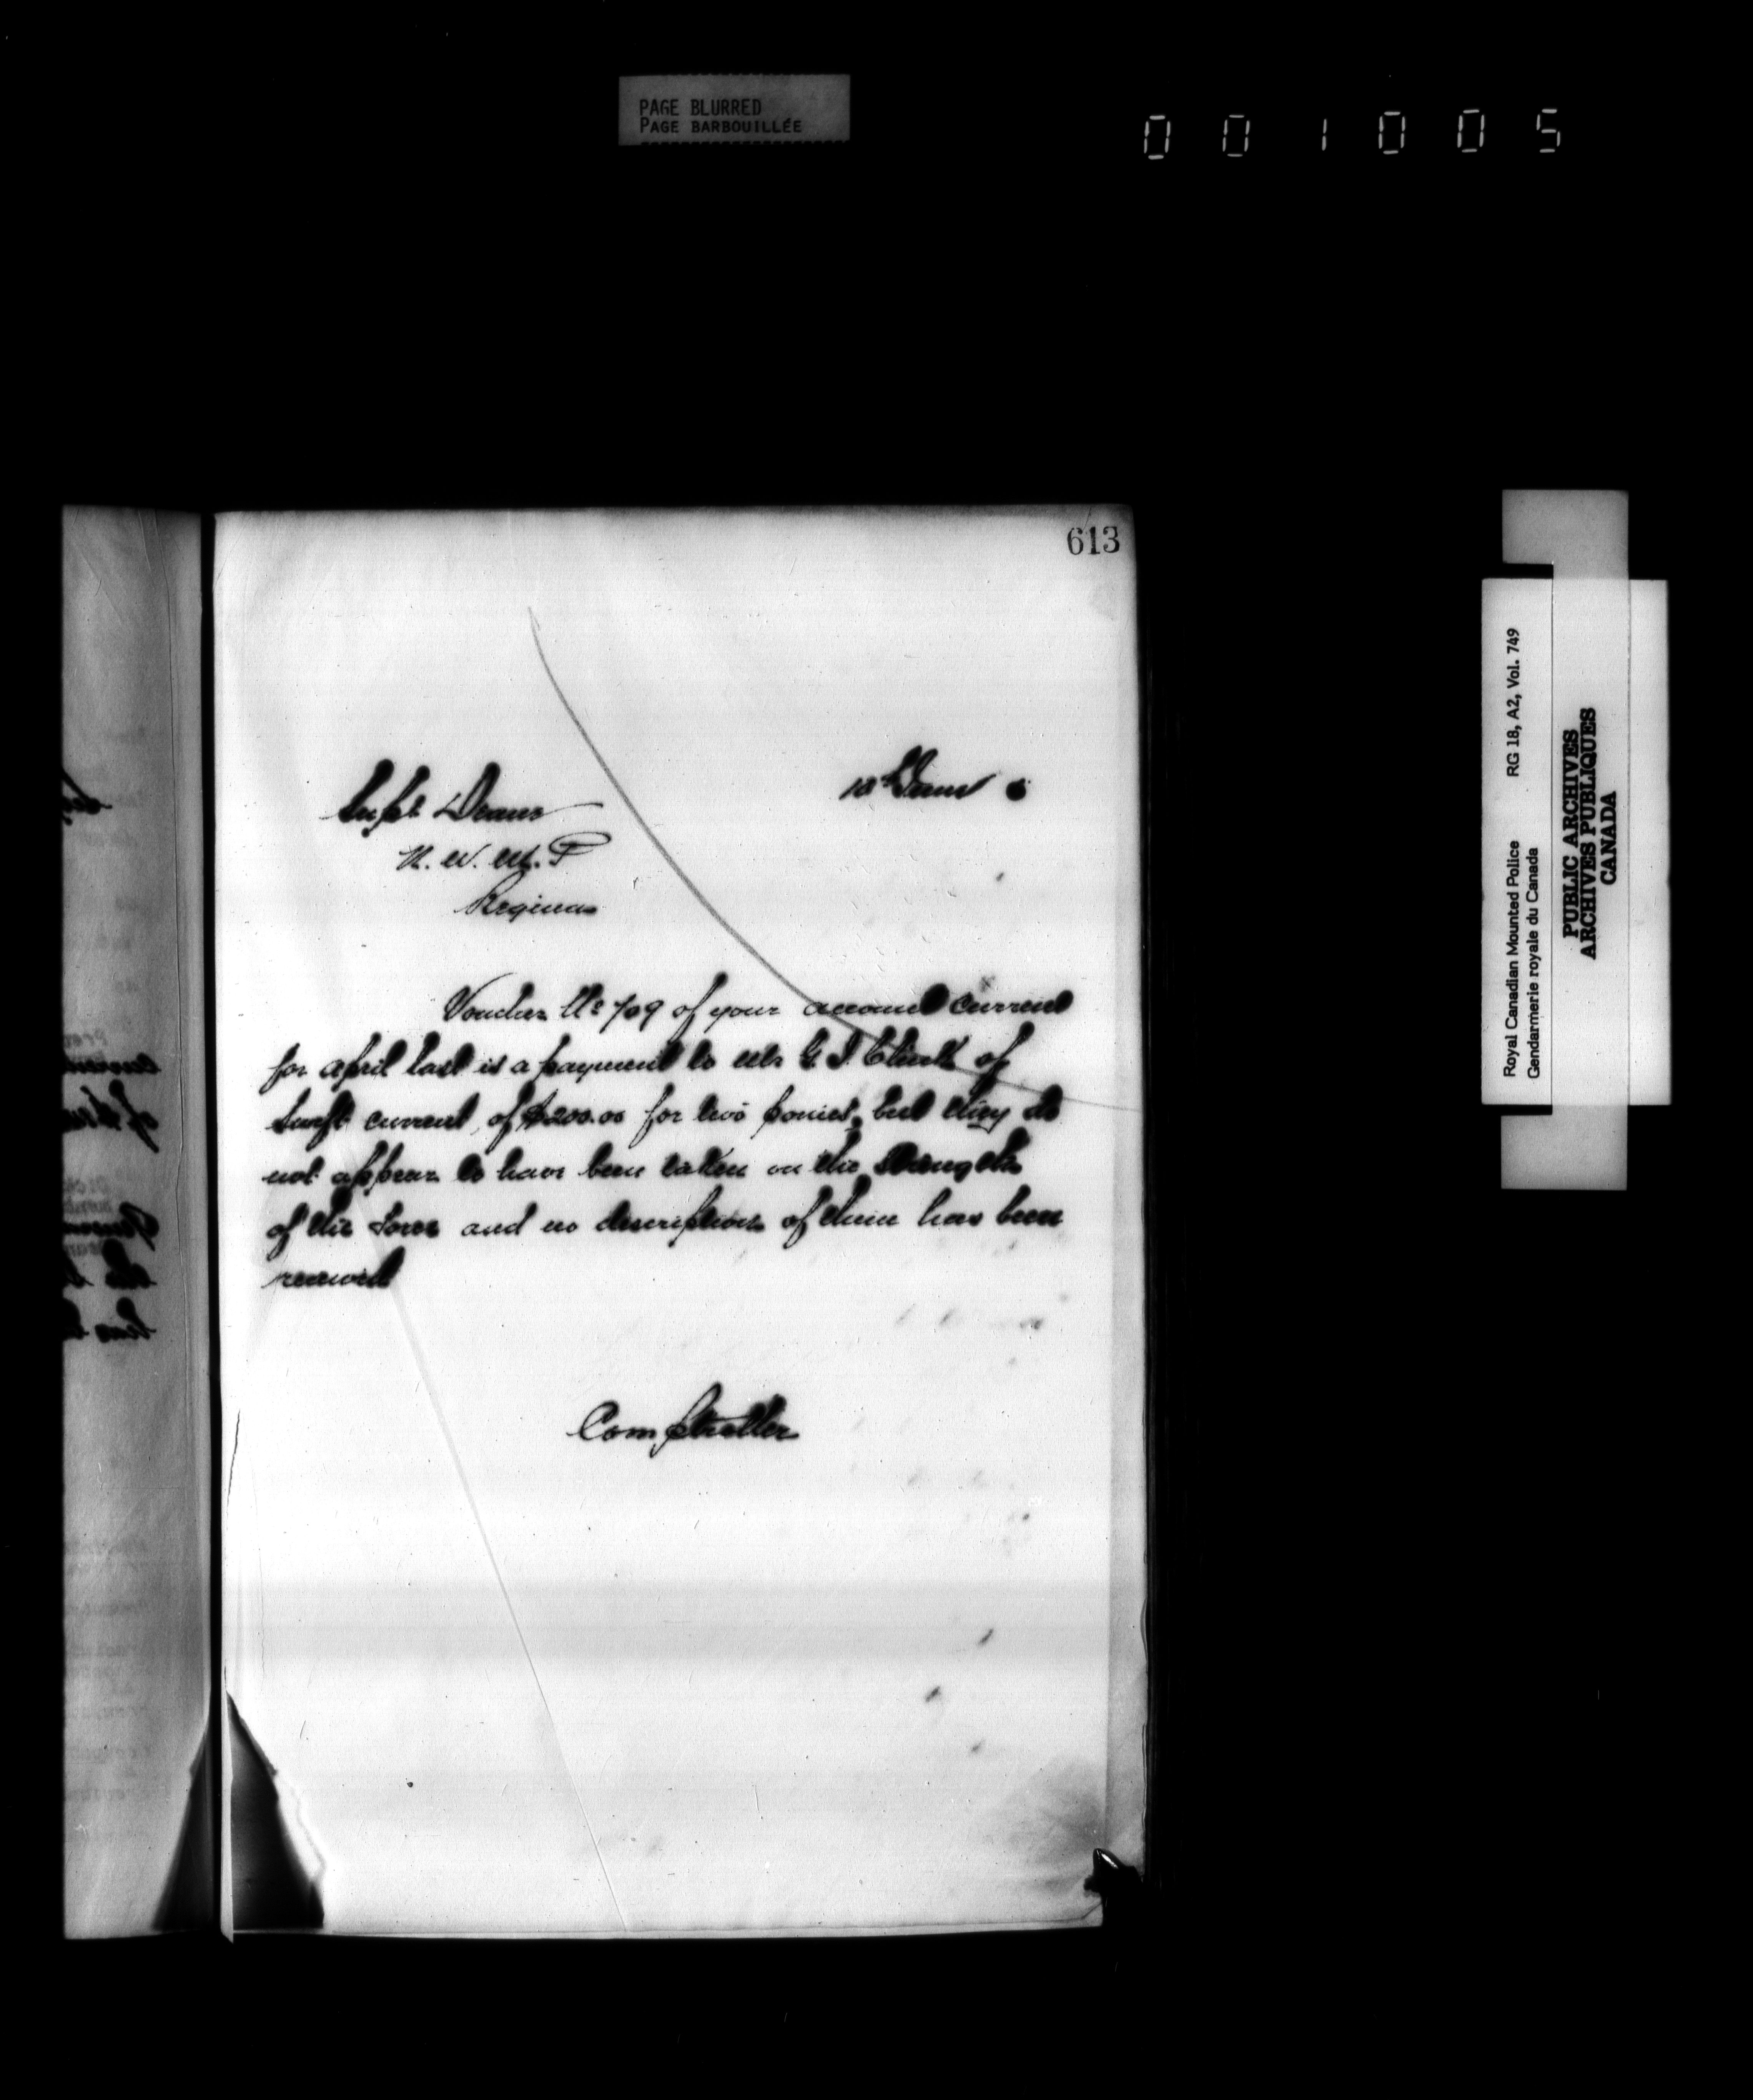 PAGE BLURRED
PAGE BARBOUILLÉE
001005
613
Supt Deane
N. W. M. P
Regina
Voucher No 709 of your account current
for April last is a payment to Mr G. J. of
Swift current, of $200.00 for two ponies, but they do
not appear to have been taken on the strength
of the Force and no description of them has been
received
Comptroller
Royal Canadian Mounted Police RG 18, A2, Vol. 749
Gendarmerie royale du Canada
PUBLIC ARCHIVES
ARCHIVES PUBLIQUES
CANADA